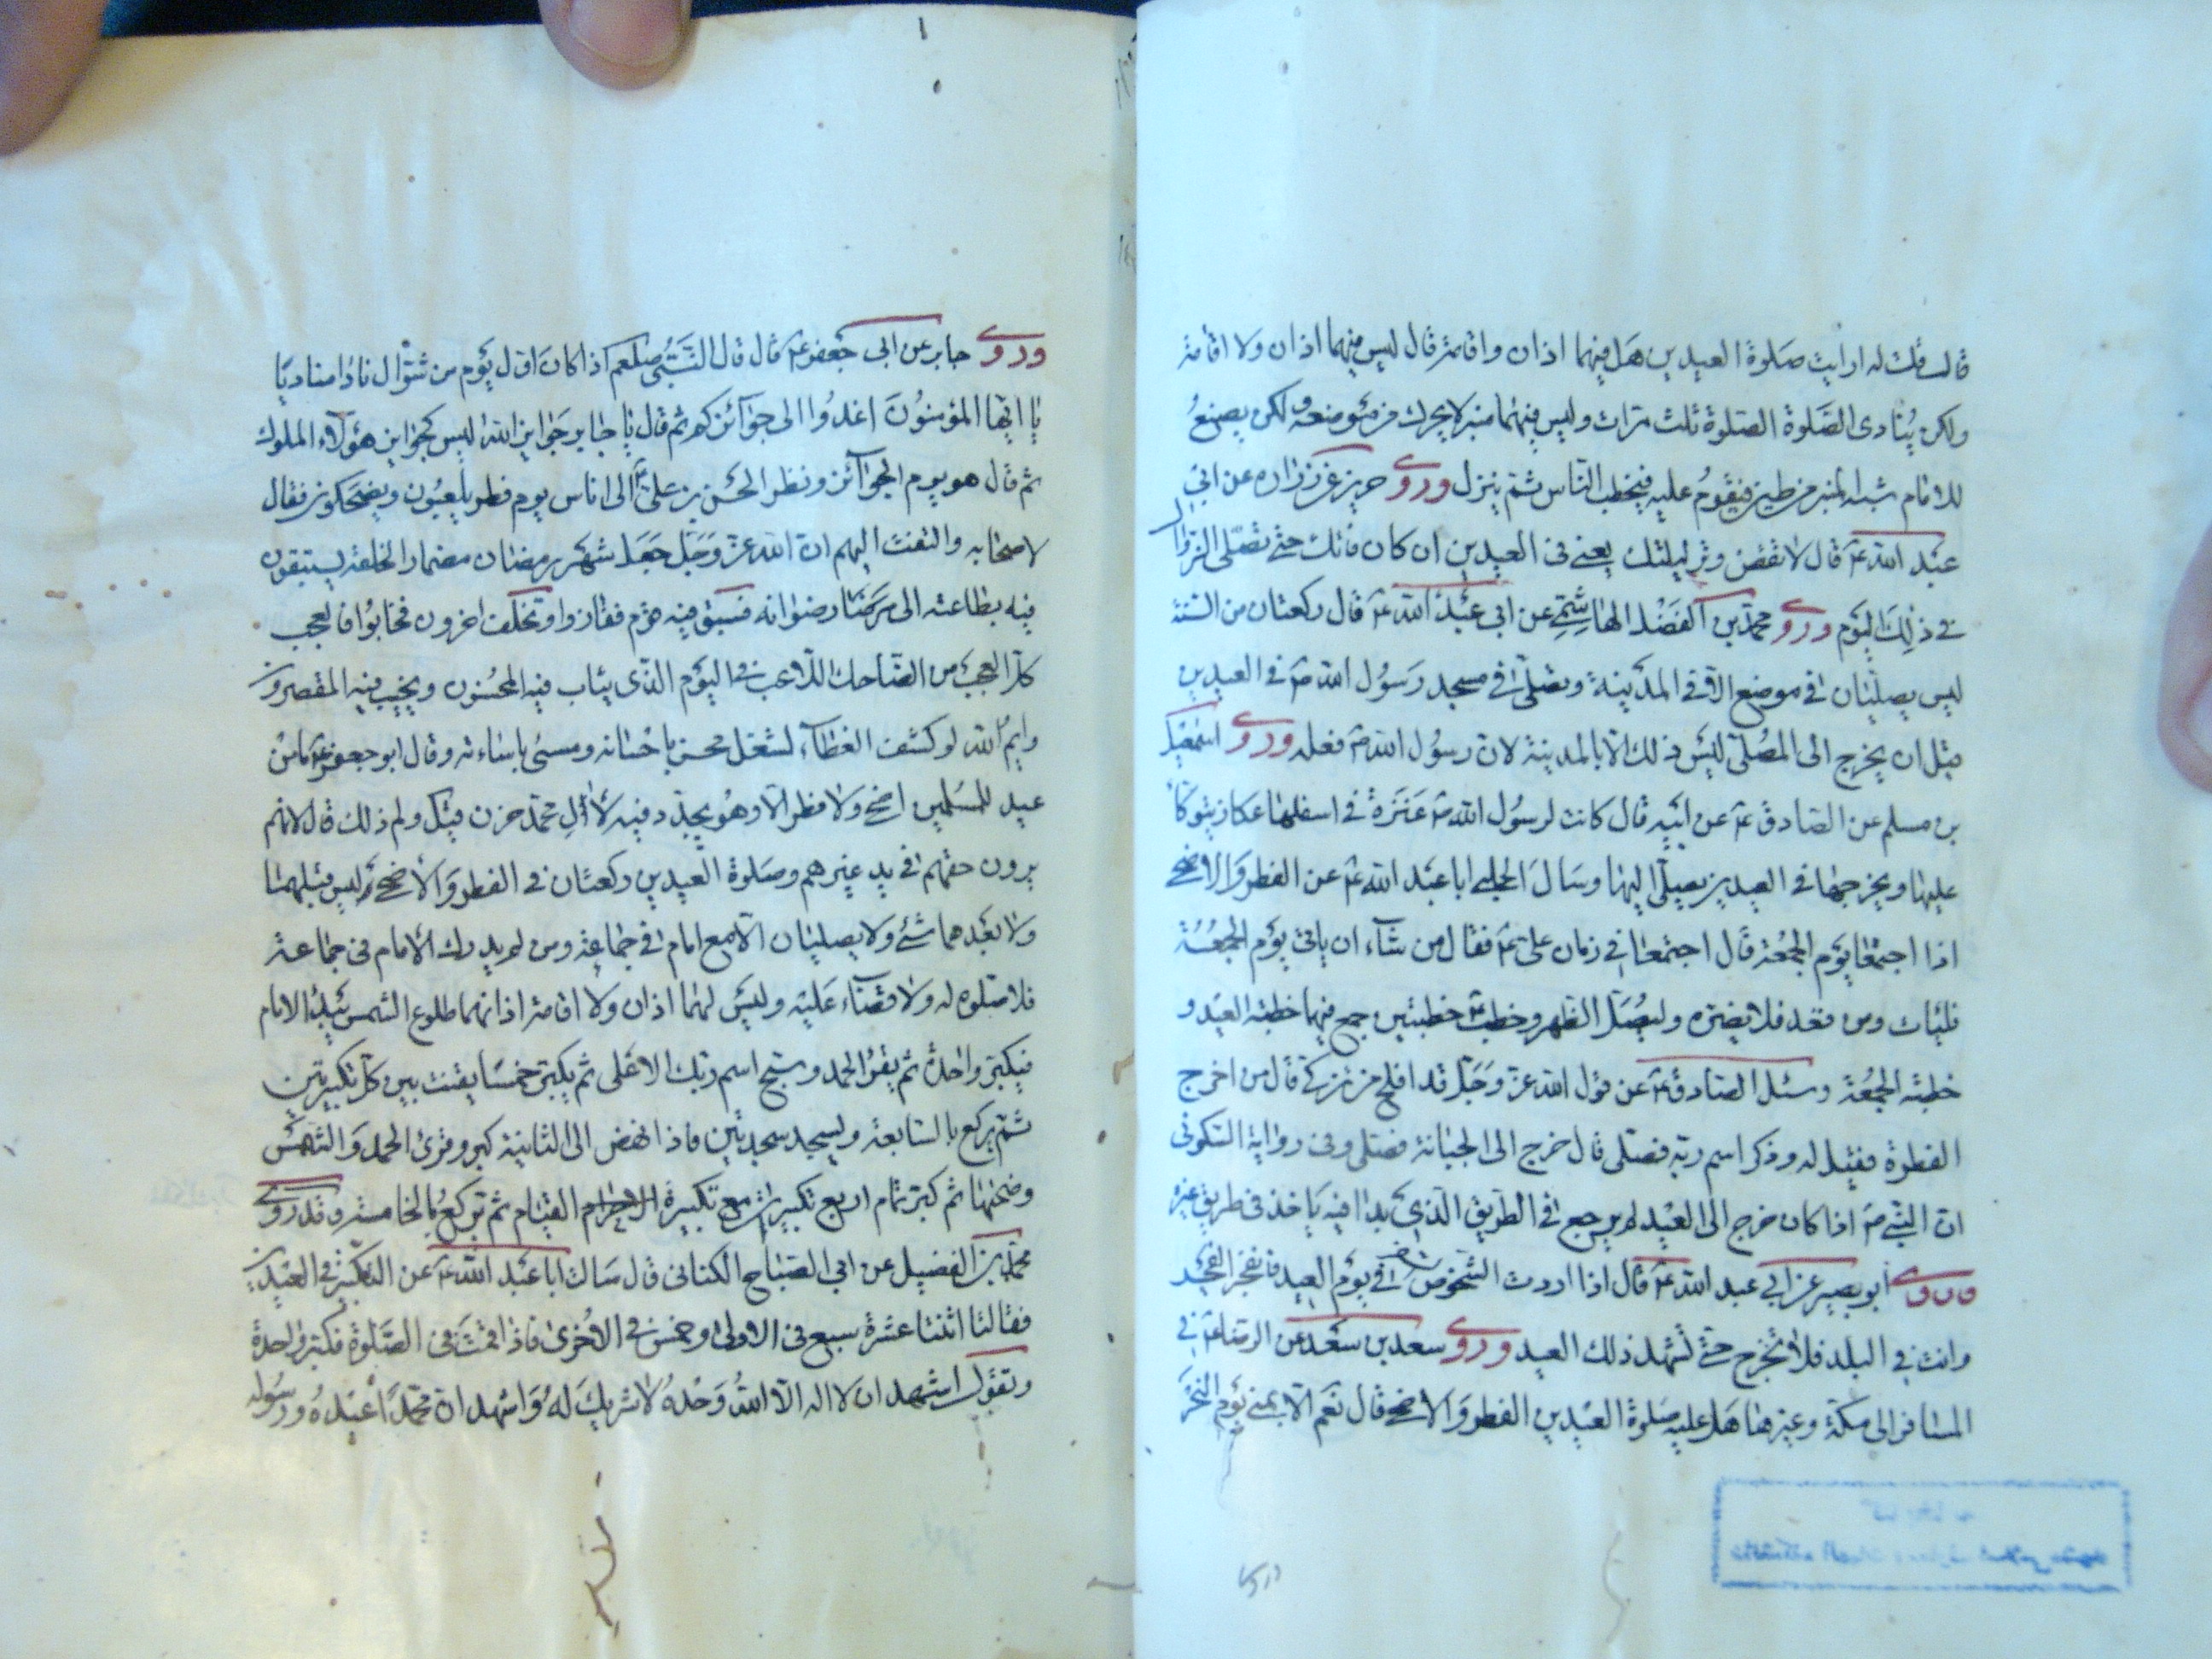 قال قلت له ارايت صلوة العيدين هل فيهما اذان واقامة قال ليس فيهما اذان ولا اقامة
ولكن ينادى الصلوة الصلوة ثلث مرات وليس فيهما منبر لا يحرك من موضعه ولكن يصنع
للامام شبه المنبر من طين فيقوم عليه فيخطب الناس ثم ينزل وروى حريز عن زراره عن ابي
عبد الله ع قال لا تقض وتر ليلتك يعنى فى العيدين ان كان فاتك حتى تصلى الزوال
فى ذلك اليوم وروى محمد بن الفضل الهاشمى عن ابى عبد الله ع قال ركعتان من السنة
ليس يصليان فى موضع الا فى المدينة وتصلى فى مسجد رسول الله ص فى العيدين
قبل ان يخرج الى المصلى ليس ذلك الا بالمدينة لان رسول الله ص فعله وروى اسمعيل
بن مسلم عن الصادق ع عن ابيه قال كانت لرسول الله ص عنزة فى اسفلها عكاز يتوكأ
عليها ويخرجها فى العيدين يصلى اليها وسال الحلبى ابا عبد الله ع عن الفطر والاضحى
اذا اجتمعا يوم الجمعة قال اجتمعا فى زمان على ع فقال من شاء ان ياتى يوم الجمعة
فليات ومن قعد فلا يضره وليصل الظهر وخطب ع خطبتين جمع فيهما خطبة العيد و
خطبة الجمعة وسئل الصادق ع عن قول الله عز وجل قد افلح من تزكى قال من اخرج
الفطرة فقيل له وذكر اسم ربه فصلى قال خرج الى الجبانة فصلى وفى رواية السكونى
ان النبى ص اذا كان خرج الى العيد لم يرجع فى الطريق الذي بدا فيه ياخذ فى طريق غيره
وروى ابو بصير عن ابي عبد الله ع قال اذا اردت الشخوص فى يوم العيد فانفجر الفجر
وانت فى البلد فلا تخرج حتى تشهد ذلك العيد وروى سعد بن سعد عن الرضا ع فى
المسافر الى مكة وغيرها هل عليه صلوة العيدين الفطر والاضحى قال نعم الا بمنى يوم النحر
وروى جابر عن ابى جعفر ع قال قال النبى صلعم اذا كان اول يوم من شوال نادا مناديا
يا ايها المؤمنون اغدوا الى جوائزكم ثم قال يا جابر جوايز الله ليس كجوايز هؤلاء الملوك
ثم قال هو يوم الجوائز ونظر الحسن بن على ع الى اناس يوم فطر يلعبون ويضحكون فقال
لاصحابه والتفت اليهم ان الله عز وجل جعل شهر رمضان مضمارا لخلقه يستبقون
فيه بطاعته الى مرضات رضوانه فسبق فيه قوم ففازوا وتخلف اخرون فخابوا فالعجب
كل العجب من الضاحك اللاعب فى اليوم الذى يثاب فيه المحسنون ويخيب فيه المقصرون
وايم الله لو كشف الغطاء لشغل محسن باحسانه ومسئ باساءته وقال ابو جعفر ع ما من
عيد للمسلمين اضحى ولا فطر الا وهو يجدد فيه لأال محمد حزن قيل ولم ذلك قال لانهم
يرون حقهم فى يد غيرهم وصلوة العيدين ركعتان فى الفطر والاضحى وليس قبلهما
ولا بعدهما شئ ولا يصليان الا مع امام فى جماعة ومن لم يدرك الامام فى جماعة
فلا صلوة له ولا قضاء عليه وليس لهما اذان ولا اقامة اذانهما طلوع الشمس يبدأ الامام
فيكبر واحدة ثم يقرأ الحمد وسبح اسم ربك الاعلى ثم يكبر خمسا يقنت بين كل تكبيرتين
ثم يركع بالسابعة ويسجد سجدتين فاذا نهض الى الثانية كبر وقرئ الحمد والشمس
وضحها ثم كبر تمام اربع تكبيرات مع تكبيرة القيام ثم تركع بالخامسة وقد روى
محمد بن الفضيل عن ابي الصباح الكنانى قال سالت ابا عبد الله ع عن التكبير فى العيدين
فقال اثنتا عشرة سبع فى الاولى وخمس فى الاخرى فاذا قمت فى الصلوة فكبر واحدة
وتقول اشهد ان لا اله الا الله وحده لا شريك له واشهد ان محمدا عبده ورسوله